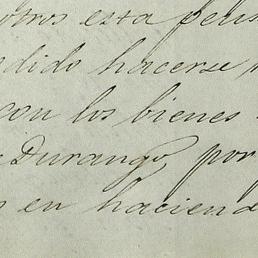 otros esta pens
dido hacerse
con los bienes
Durango, por
en haciend